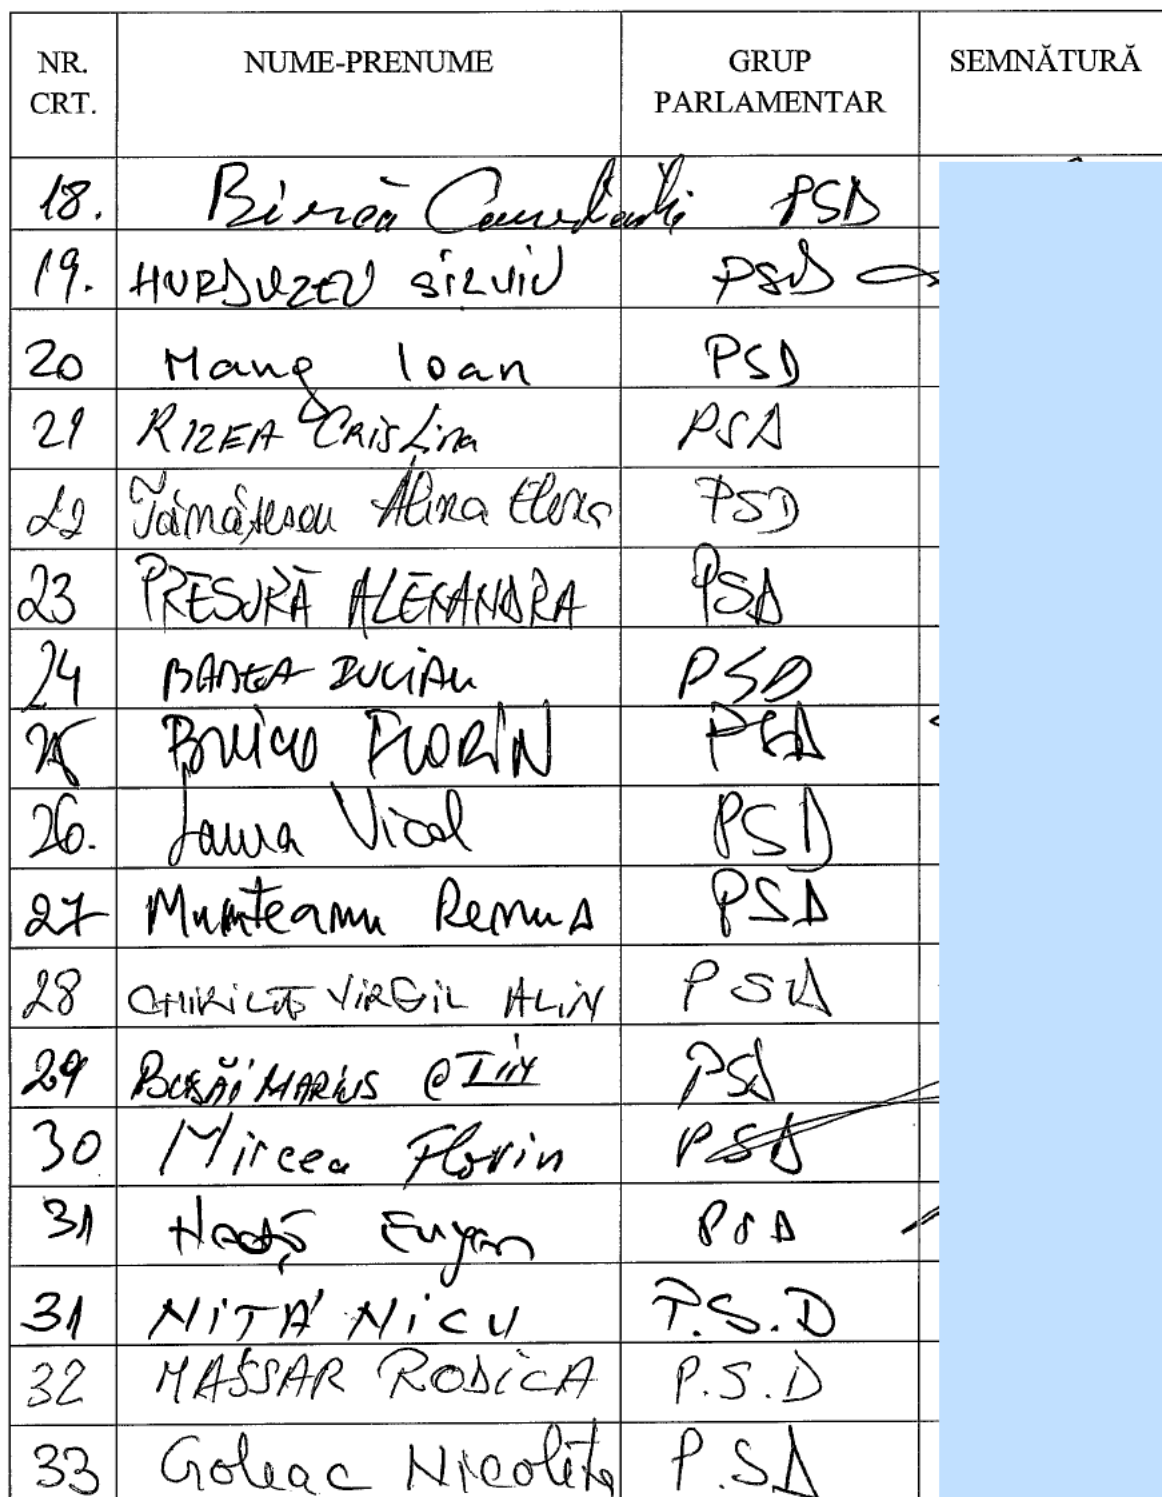 NR. CRT. NUME-PRENUME GRUP PARLAMENTAR SEMNĂTURĂ
18. Bîrcă Constantin PSD
19. HURDUZEU SILVIU PSD
20 Mang Ioan PSD
21 RIZEA CRISTina PSD
22 Tănăsescu Alina Elena PSD
23 PRESURĂ ALEXANDRA PSD
24 BADEA LUCIAN PSD
25 FLORIN PSD
26. Laura Vicol PSD
27 Munteanu Remus PSD
28 CHIRILĂ VIRGIL ALIN PSD
29 MARIUS PSD
30 Mircea Florin PSD
31 Eugen PSD
31 NIȚĂ NICU P.S.D
32 MASSAR RODICA P.S.D
33 Goleac Nicoleta P.SD